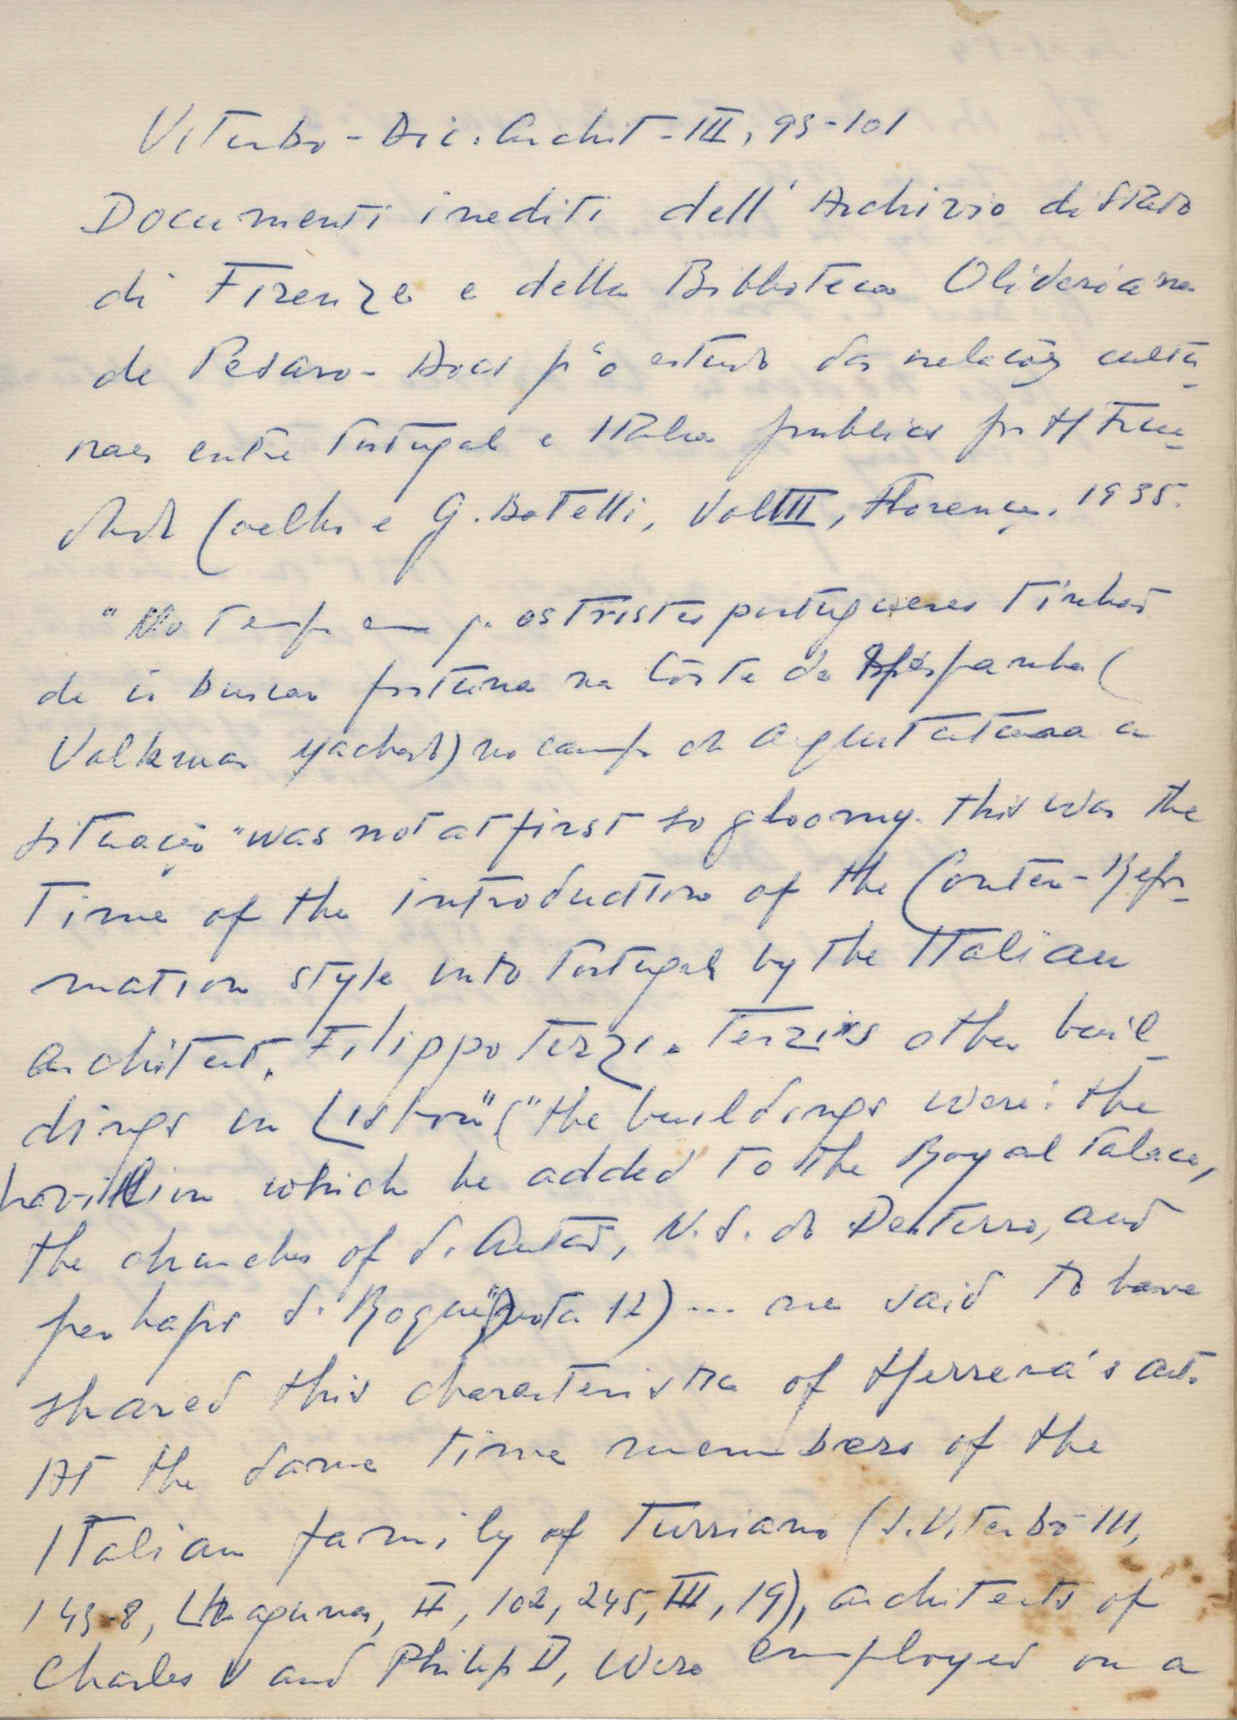 Viterbo - Dic. Archit - III, 93-101
Documenti inediti dell' Archivio di Stato
di Firenze e della Biblioteca Oliveriana
de Pesaro - Docs pª o estudo das relações cultu-
raes entre Portugal e Italia publicas por H Trin-
dade Coelho e G. Batelli, Vol III, Florença, 1935.
"No tempo em q. os tristes portugueses tinham
de ir buscar fortuna na Côrte da Espanha (
Volkmar Machado) no campo da arquitetura a
situação "was not at first so gloomy. this was the
time of the introduction of the Conter-Refor-
mation style into Portugal by the Italian
architect, Filippo Terzi. Terzi's other buil-
dings in Lisbon" ("the buildings were: the
pavillion which he added to the Royal Palace,
the churches of S. Antão, N. S. do Desterro, and
perhaps S. Roque" nota 12) ... are said to have
shared this characteristic of Herrera's art.
At the same time members of the
Italian family of Turriano (S. Viterbo III,
143-8, Llaguno, II, 102, 245, III, 19), architects of
Charles V and Philip II, were employed on a